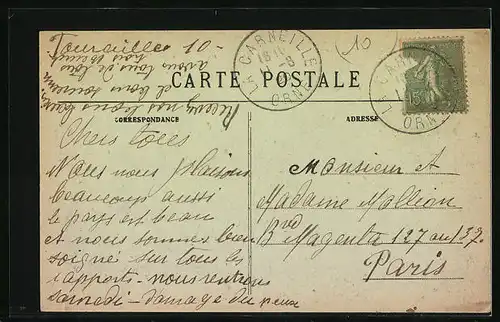 Tourailles 10 -
LA CARNEILLE
ORNE
CARTE POSTALE
CORRESPONDANCE
ADRESSE
Chers tous
Nous nous plaisons
beaucoup aussi
le pays est beau
et nous sommes bien
soigné sur tous les
rapports - nous rentrons
samedi - domage du peux
Monsieur et
Madame Mollion
Bred Magenta 127 au 137
Paris